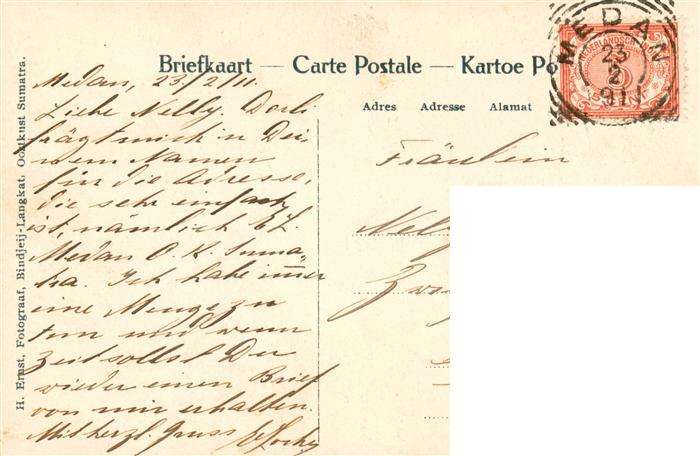 Briefkaart — Carte Postale — Kartoe Po
Adres Adresse Alamat
MEDAN
23
2
911
NEDERLANDSCH
H. Ernst, Fotograaf, Bindjeij-Langkat. Oostkust Sumatra.
Medan, 23/2/11.
Liebe Nelly. Dorli
frägt mich in Dei-
nem Namen
für die Adresse,
die sehr einfach
ist, nämlich
Medan O. K. Suma-
tra. Ich habe immer
eine Menge zu
tun und wenn
Zeit sollst Du
wieder einen Brief
von mir erhalten.
Mit herzl. Gruss
Fräulein
Nelly